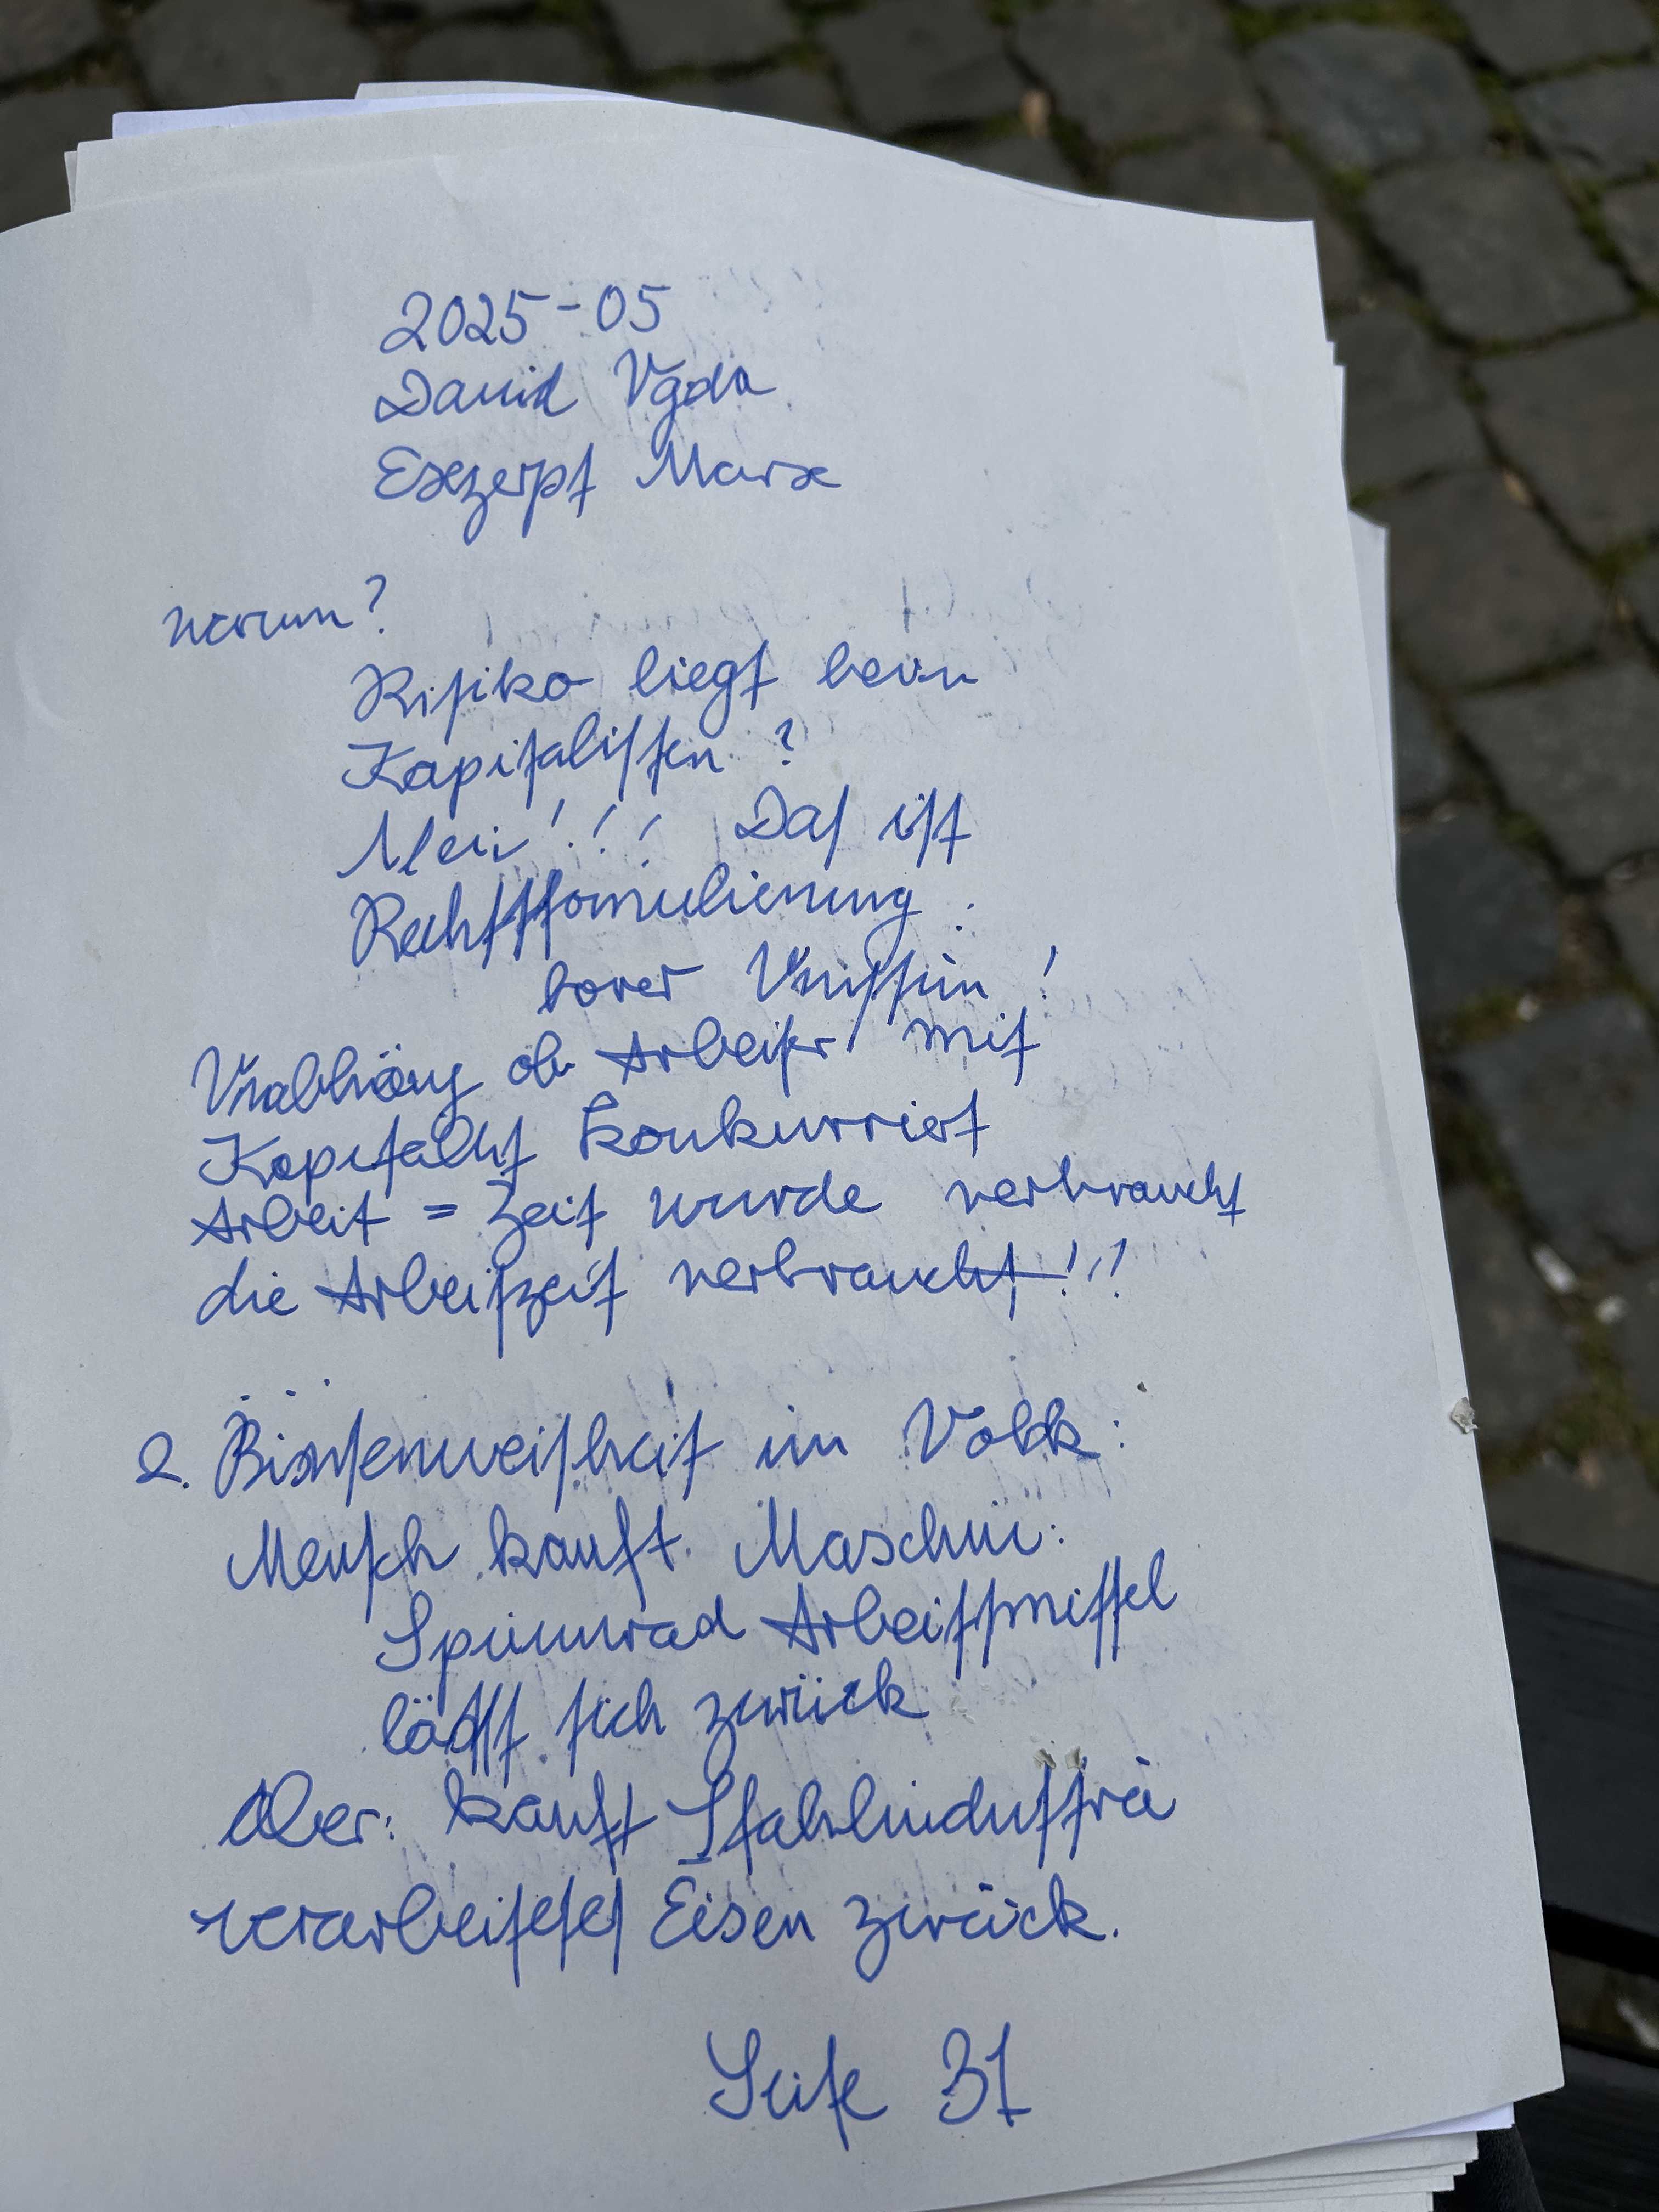 2025-05
David Vgda
Exzerpt Marx
warum?
Risiko liegt beim
Kapitalisten ?
Nein!!! Das ist
Rechtsformulierung :
barer Unsinn !
Unabhäng ob Arbeiter mit
Kapitalist konkurriert
Arbeit = Zeit wurde verbraucht
die Arbeitszeit verbraucht!!!
2. Binsenweisheit im Volk:
Mensch kauft Maschine:
Spinnrad Arbeitsmittel
lässt sich zurück
Aber: kauft Stahlindustrie
verarbeitetes Eisen zurück.
Seite 31